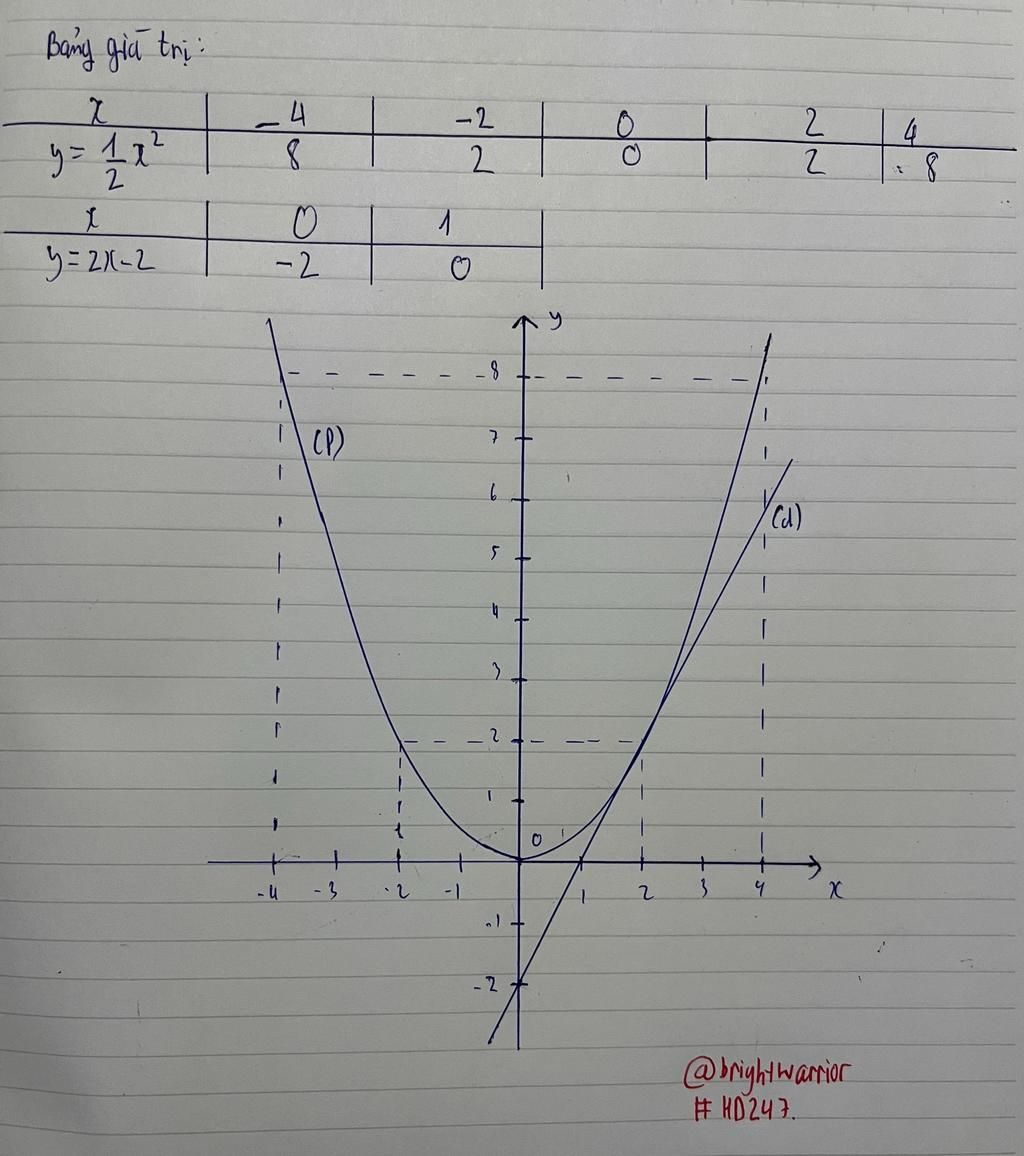 Bảng giá trị:
x -4 -2 0 2 4
y = 1/2 x² 8 2 0 2 8
x 0 1
y = 2x-2 -2 0
y
8
(P)
7
6
(d)
5
4
3
2
1
0
-4 -3 -2 -1 1 2 3 4 x
-1
-2
@brightwarrior
# HD247.